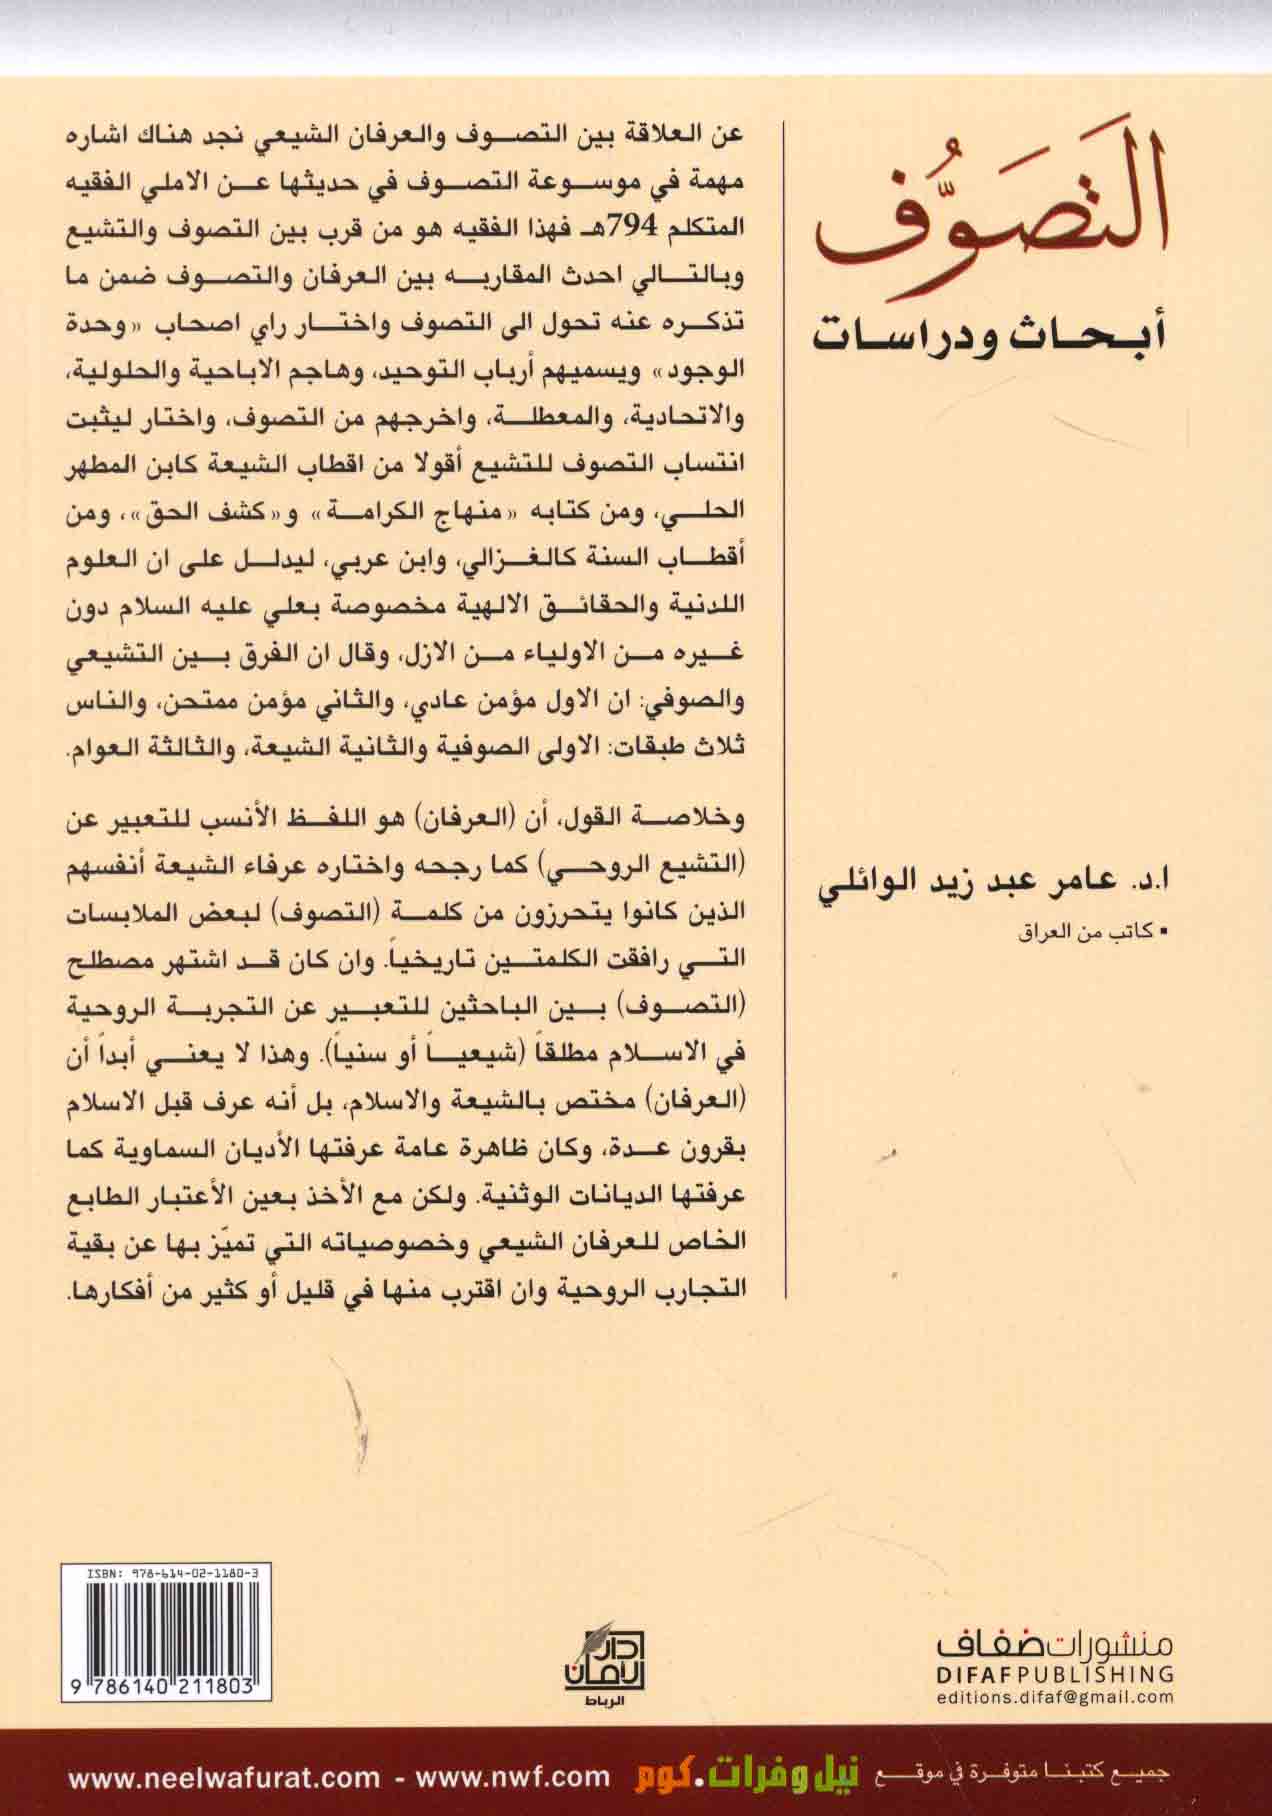 التَصَوُّف
أبحاث ودراسات
ا.د. عامر عبد زيد الوائلي
▪ كاتب من العراق
عن العلاقة بين التصوف والعرفان الشيعي نجد هناك اشاره
مهمة في موسوعة التصوف في حديثها عن الاملي الفقيه
المتكلم 794هـ فهذا الفقيه هو من قرب بين التصوف والتشيع
وبالتالي احدث المقاربه بين العرفان والتصوف ضمن ما
تذكره عنه تحول الى التصوف واختار راي اصحاب «وحدة
الوجود» ويسميهم أرباب التوحيد، وهاجم الاباحية والحلولية،
والاتحادية، والمعطلة، واخرجهم من التصوف، واختار ليثبت
انتساب التصوف للتشيع أقولا من اقطاب الشيعة كابن المطهر
الحلي، ومن كتابه «منهاج الكرامة» و«كشف الحق»، ومن
أقطاب السنة كالغزالي، وابن عربي، ليدلل على ان العلوم
اللدنية والحقائق الالهية مخصوصة بعلي عليه السلام دون
غيره من الاولياء من الازل، وقال ان الفرق بين التشيعي
والصوفي: ان الاول مؤمن عادي، والثاني مؤمن ممتحن، والناس
ثلاث طبقات: الاولى الصوفية والثانية الشيعة، والثالثة العوام.
وخلاصة القول، أن (العرفان) هو اللفظ الأنسب للتعبير عن
(التشيع الروحي) كما رجحه واختاره عرفاء الشيعة أنفسهم
الذين كانوا يتحرزون من كلمة (التصوف) لبعض الملابسات
التي رافقت الكلمتين تاريخياً. وان كان قد اشتهر مصطلح
(التصوف) بين الباحثين للتعبير عن التجربة الروحية
في الاسلام مطلقاً (شيعياً أو سنياً). وهذا لا يعني أبداً أن
(العرفان) مختص بالشيعة والاسلام، بل أنه عرف قبل الاسلام
بقرون عدة، وكان ظاهرة عامة عرفتها الأديان السماوية كما
عرفتها الديانات الوثنية. ولكن مع الأخذ بعين الأعتبار الطابع
الخاص للعرفان الشيعي وخصوصياته التي تميّز بها عن بقية
التجارب الروحية وان اقترب منها في قليل أو كثير من أفكارها.
منشورات ضفاف
DIFAF PUBLISHING
editions.difaf@gmail.com
دار
الأمان
الرباط
ISBN: 978-614-02-1180-3
9 786140 211803
جميع كتبنا متوفرة في موقع نيل وفرات.كوم www.neelwafurat.com - www.nwf.com